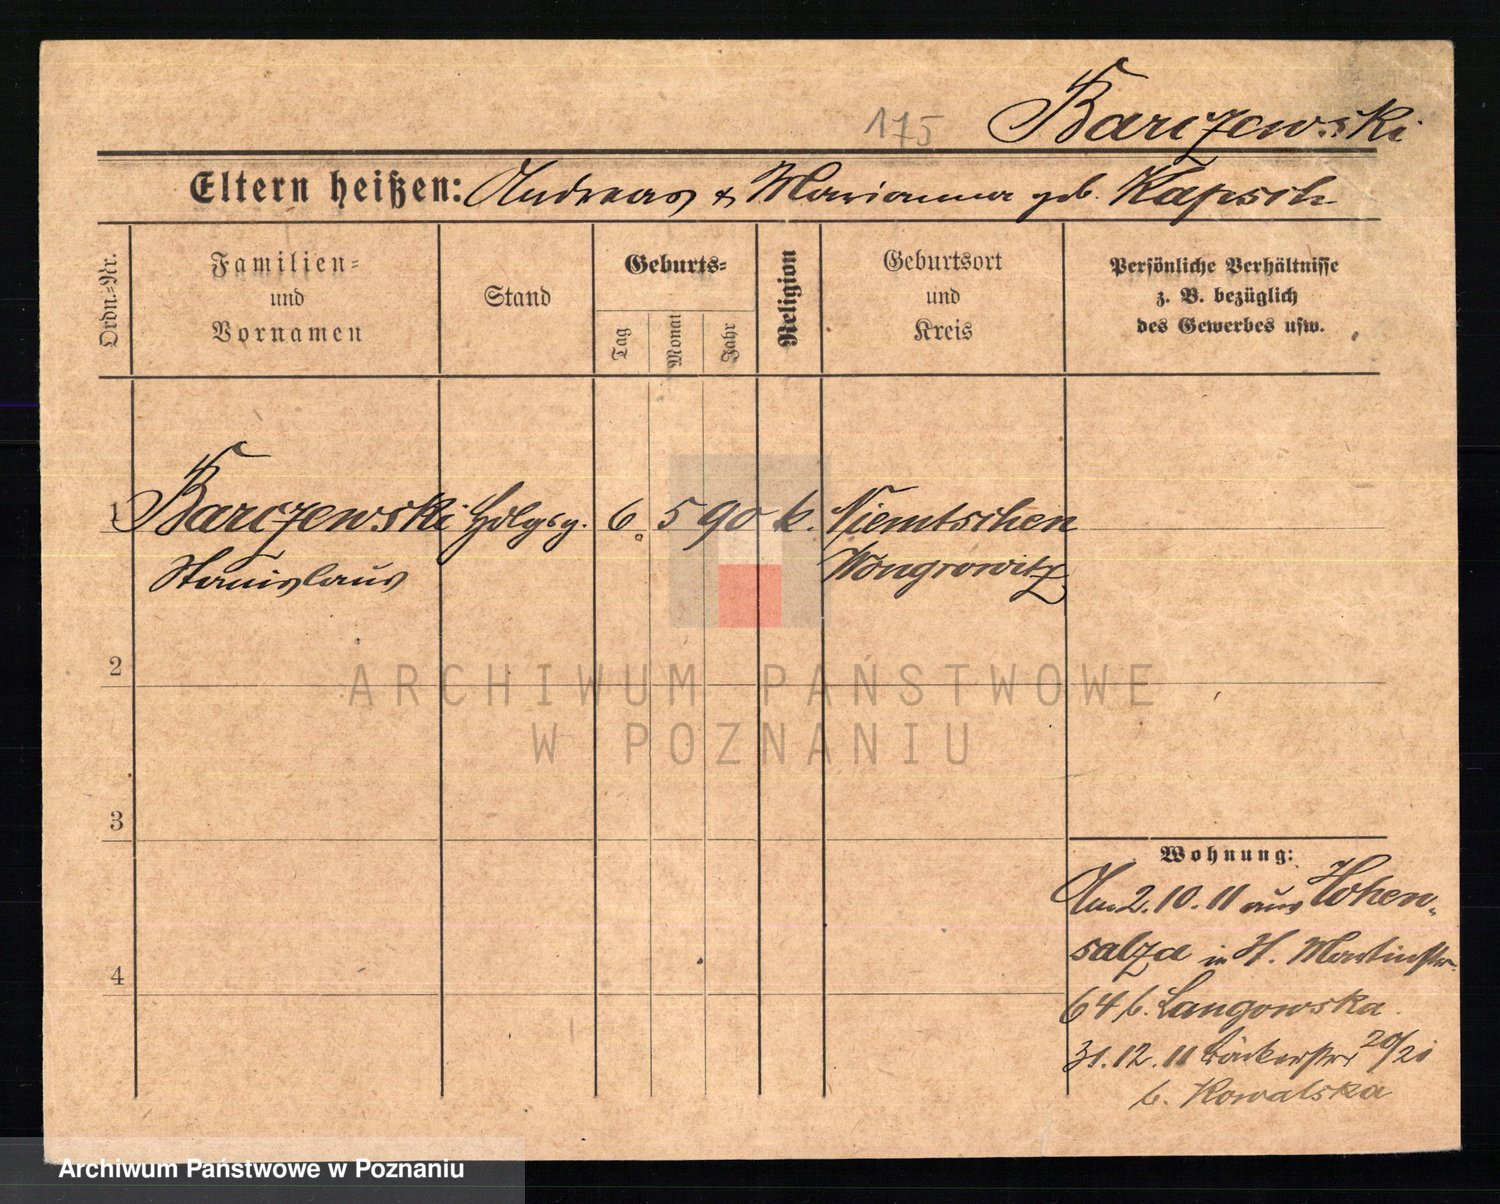 175 Barczewski
Eltern heißen: Andreas & Marianna geb. Kapsch
Ordn.-Nr.
Familien-
und
Vornamen
Stand
Geburts-
Tag
Monat
Jahr
Religion
Geburtsort
und
Kreis
Persönliche Verhältnisse
z. B. bezüglich
des Gewerbes usw.
1 Barczewski Hdlgsg. 6. 5 90 k. Niemtschen
Stanislaus Wongrowitz
2
3
4
Wohnung:
Am 2.10.11 aus Hohen-
salza in H. Martinstr.
64 b. Langowska.
31.12.11 20/21
b. Kowalska
ARCHIWUM PAŃSTWOWE
W POZNANIU
Archiwum Państwowe w Poznaniu